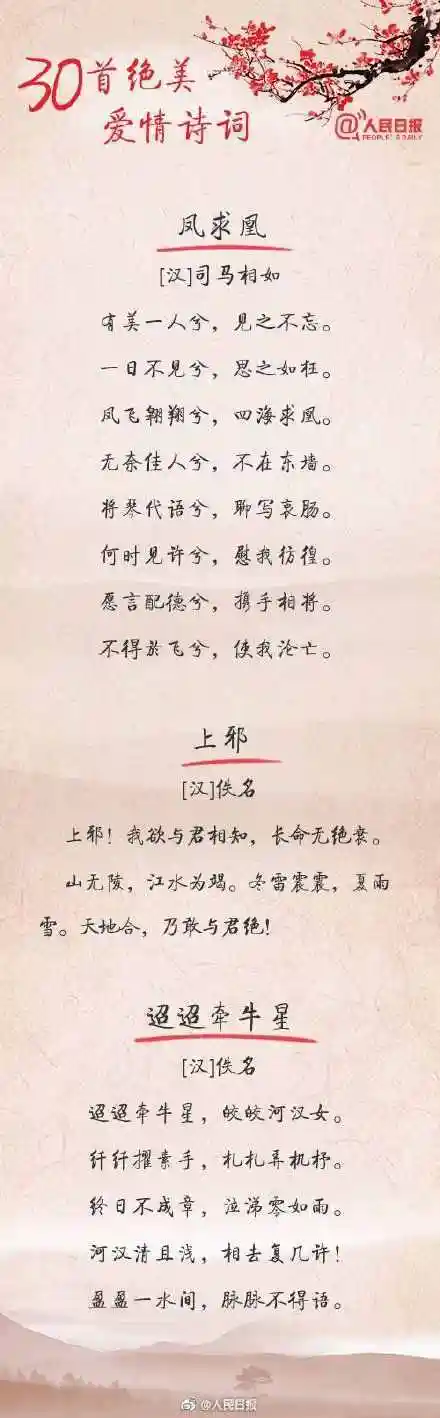 30首绝美
爱情诗词
@人民日报
PEOPLE'S DAILY
凤求凰
[汉]司马相如
有美一人兮，见之不忘。
一日不见兮，思之如狂。
凤飞翱翔兮，四海求凰。
无奈佳人兮，不在东墙。
将琴代语兮，聊写衷肠。
何时见许兮，慰我彷徨。
愿言配德兮，携手相将。
不得於飞兮，使我沦亡。
上邪
[汉]佚名
上邪！我欲与君相知，长命无绝衰。
山无陵，江水为竭。冬雷震震，夏雨
雪。天地合，乃敢与君绝！
迢迢牵牛星
[汉]佚名
迢迢牵牛星，皎皎河汉女。
纤纤擢素手，札札弄机杼。
终日不成章，泣涕零如雨。
河汉清且浅，相去复几许！
盈盈一水间，脉脉不得语。
@人民日报